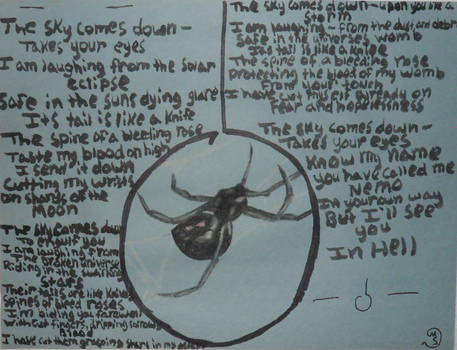 The sky comes down—
Takes your eyes
I am laughing from the solar
eclipse
Safe in the suns dying glare
Its tail is like a knife
The spine of a bleeding rose
Taste my blood on high
I send it down
Cutting my wrists
on shards of the
Moon
The sky comes down
To engulf you
I am laughing from
The broken universe
Riding in the swirling
stars
Their tails are like knives
Spines of bleed roses
I'm bieding you farewell
with cut fingers, dripping sorrows
Blood
I have cut them grasping stars in my
The sky comes down—upon you like a
storm
I am laughing—from the dust and debris
Safe in the universes womb
Its tail is like a knife
The spine of a bleeding rose
Protecting the blood of my womb
From your touch
I have cut this cit already on
Fear and hopelessness
The sky comes down—
Takes your eyes
Know my name
you have called me
Nemo
In your own way
But I'll see
you
In Hell